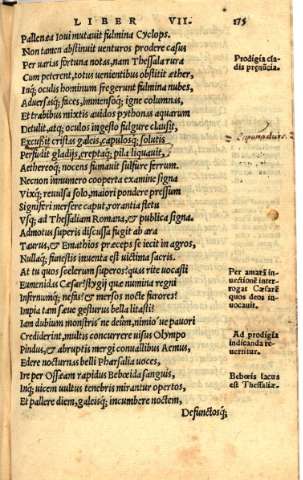 LIBER VII. 175
Pallenæ Ioui mutauit fulmina Cyclops.
Non tamen abstinuit uenturos prodere casus
Per uarias fortuna notas, nam Thessala rura
Cum peterent, totus uenientibus obstitit æther,
Inq; oculis hominum fregerunt fulmina nubes,
Aduersasq; faces, immensoq; igne columnas,
Et trabibus mixtis auidos pythonas aquarum
Detulit, atq; oculos ingesto fulgure clausit,
Excußit cristas galeis, capulosq; solutis
Perfudit gladijs, ereptaq; pila liquauit,
Aethereoq; nocens fumauit sulfure ferrum.
Necnon innumero cooperta examine signa
Vixq; reuulsa solo, maiori pondere pressum
Signiferi mersere caput, rorantia fletu
Vsq; ad Thessaliam Romana, & publica signa.
Admotus superis discussa fugit ab ara
Taurus, & Emathios præceps se iecit in agros,
Nullaq; funestis inuenta est uictima sacris.
At tu quos scelerum superos? quas rite uocasti
Eumenidas Cæsar? stygij quæ numina regni
Infernumq; nefas? & mersos nocte furores?
Impia tam sæue gesturus bella litasti?
Iam dubium monstris ne deûm, nimio ´ue pauori
Crediderint, multis concurrere uisus Olympo
Pindus, & abruptis mergi conuallibus Aemus,
Edere nocturnas belli Pharsalia uoces,
Ire per Ossæam rapidus Bebœida sanguis,
Inq; uicem uultus tenebris mirantur opertos,
Et pallere diem, galeisq; incumbere noctem,
Defunctosq;
Prodigia cla-
dis prænūcia.
Per amarā in-
uectionē inter-
rogat Cæsarē
quos deos in-
uocauit.
Ad prodigia
indicanda re-
uertitur.
Bebœis lacus
est Thessaliæ.